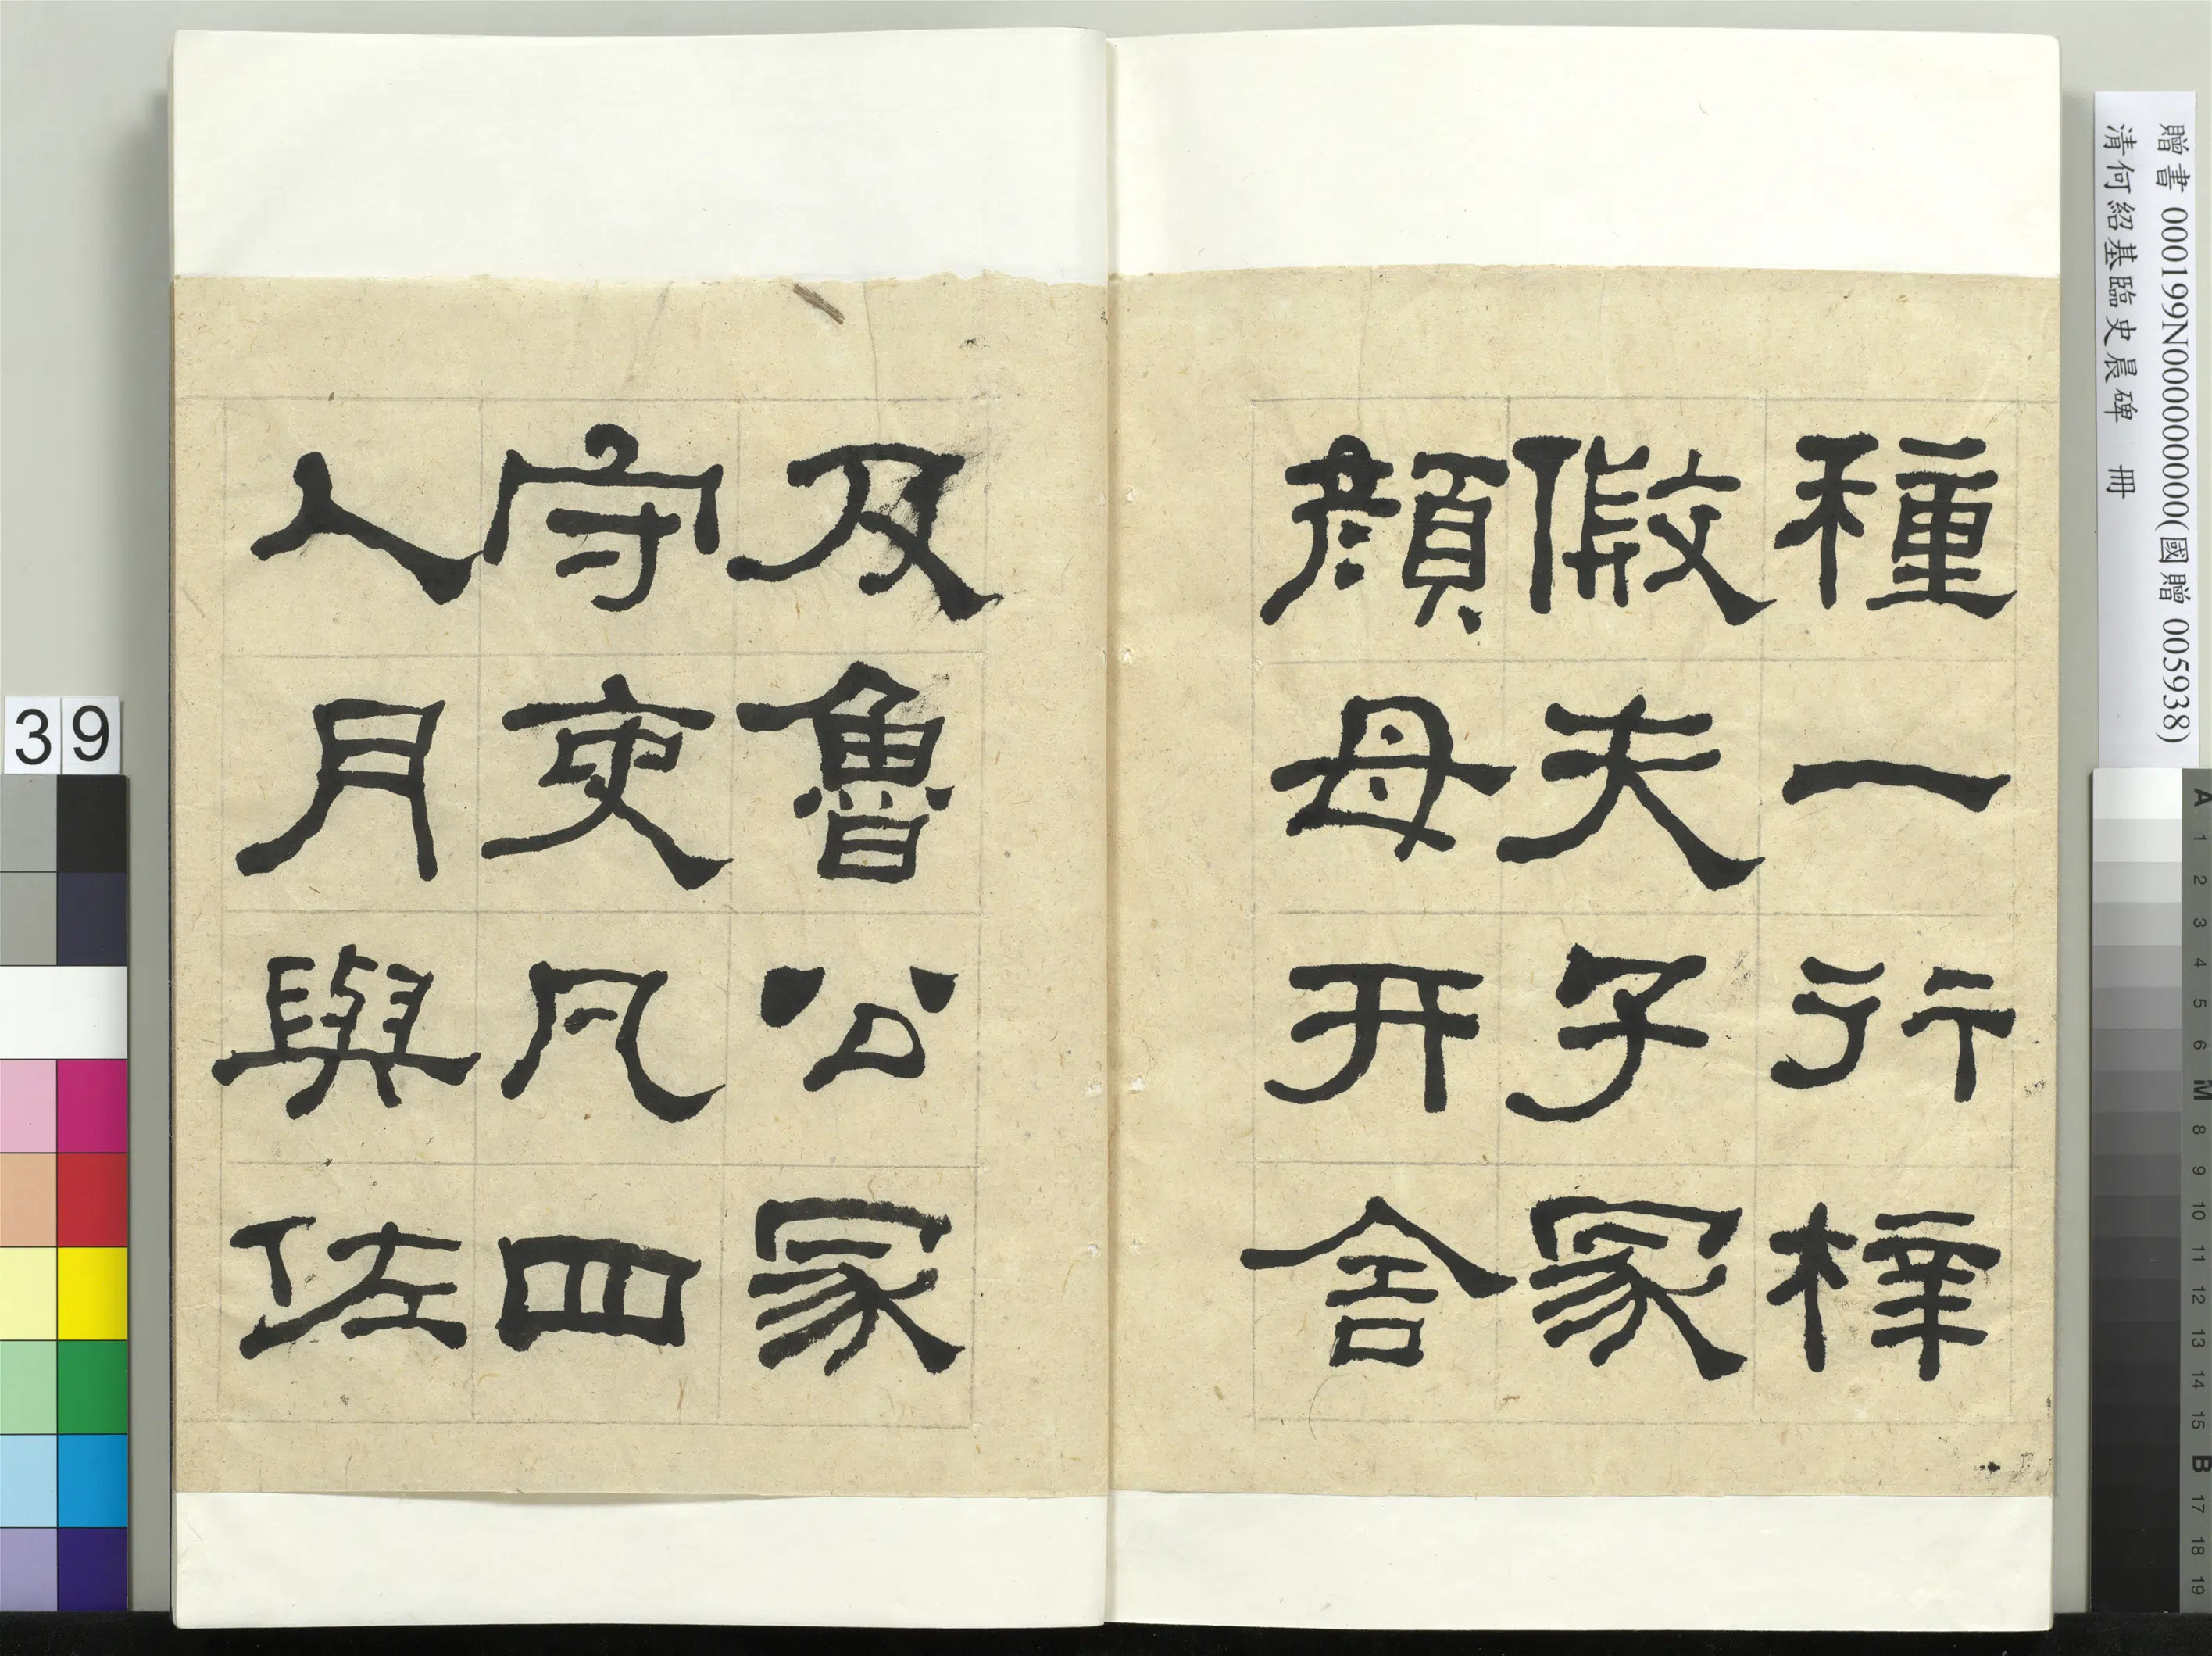 種一行梓
假夫子冢
顏母开舍
及魯公冢
守吏凡四
人月與佐
贈書 000199N000000000(國贈 005938)
清何紹基臨史晨碑 冊
39
A 1 2 3 4 5 6 M 8 9 10 11 12 13 14 15 B 17 18 19